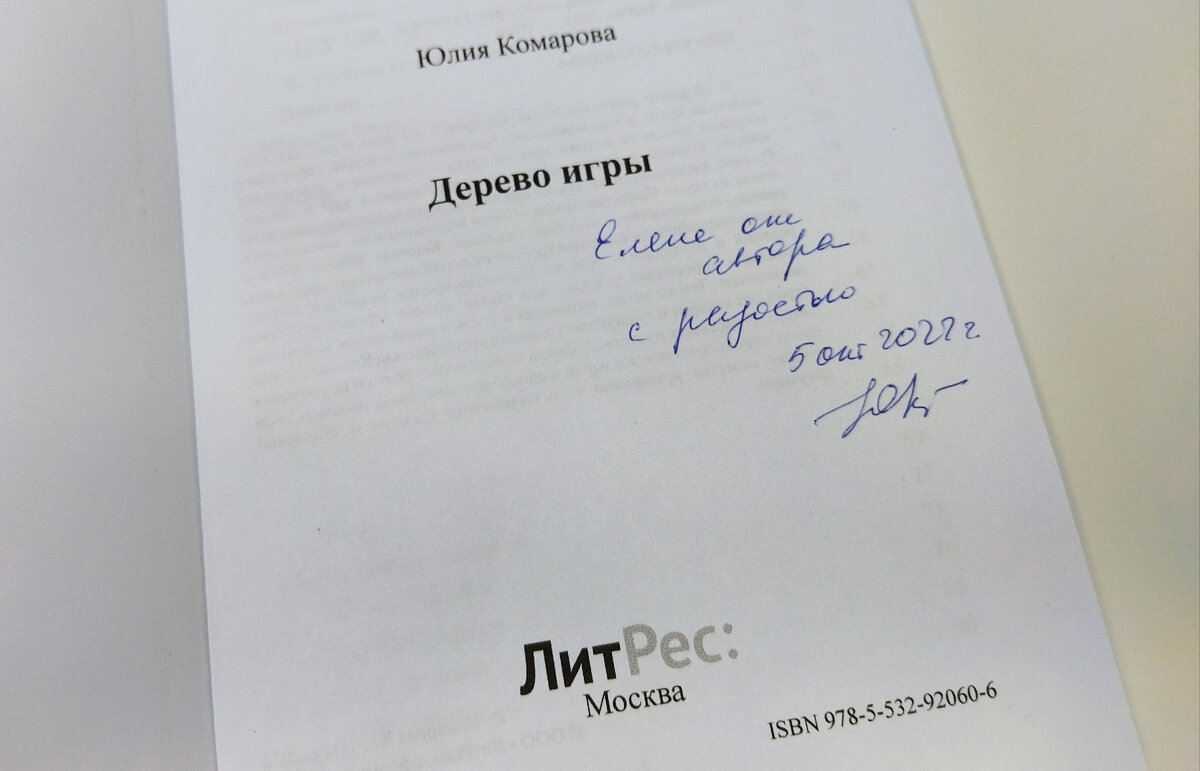 Юлия Комарова
Дерево игры
Елене от
автора
с радостью
5 окт 2022 г.
ЛитРес:
Москва
ISBN 978-5-532-92060-6